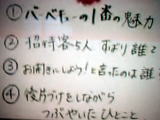 ① バーベキューの1番の魅力
② 招待客5人 ずばり誰？
③ お開きにしよう！と言ったのは誰
④ 後片づけをしながら
つぶやいたひとこと